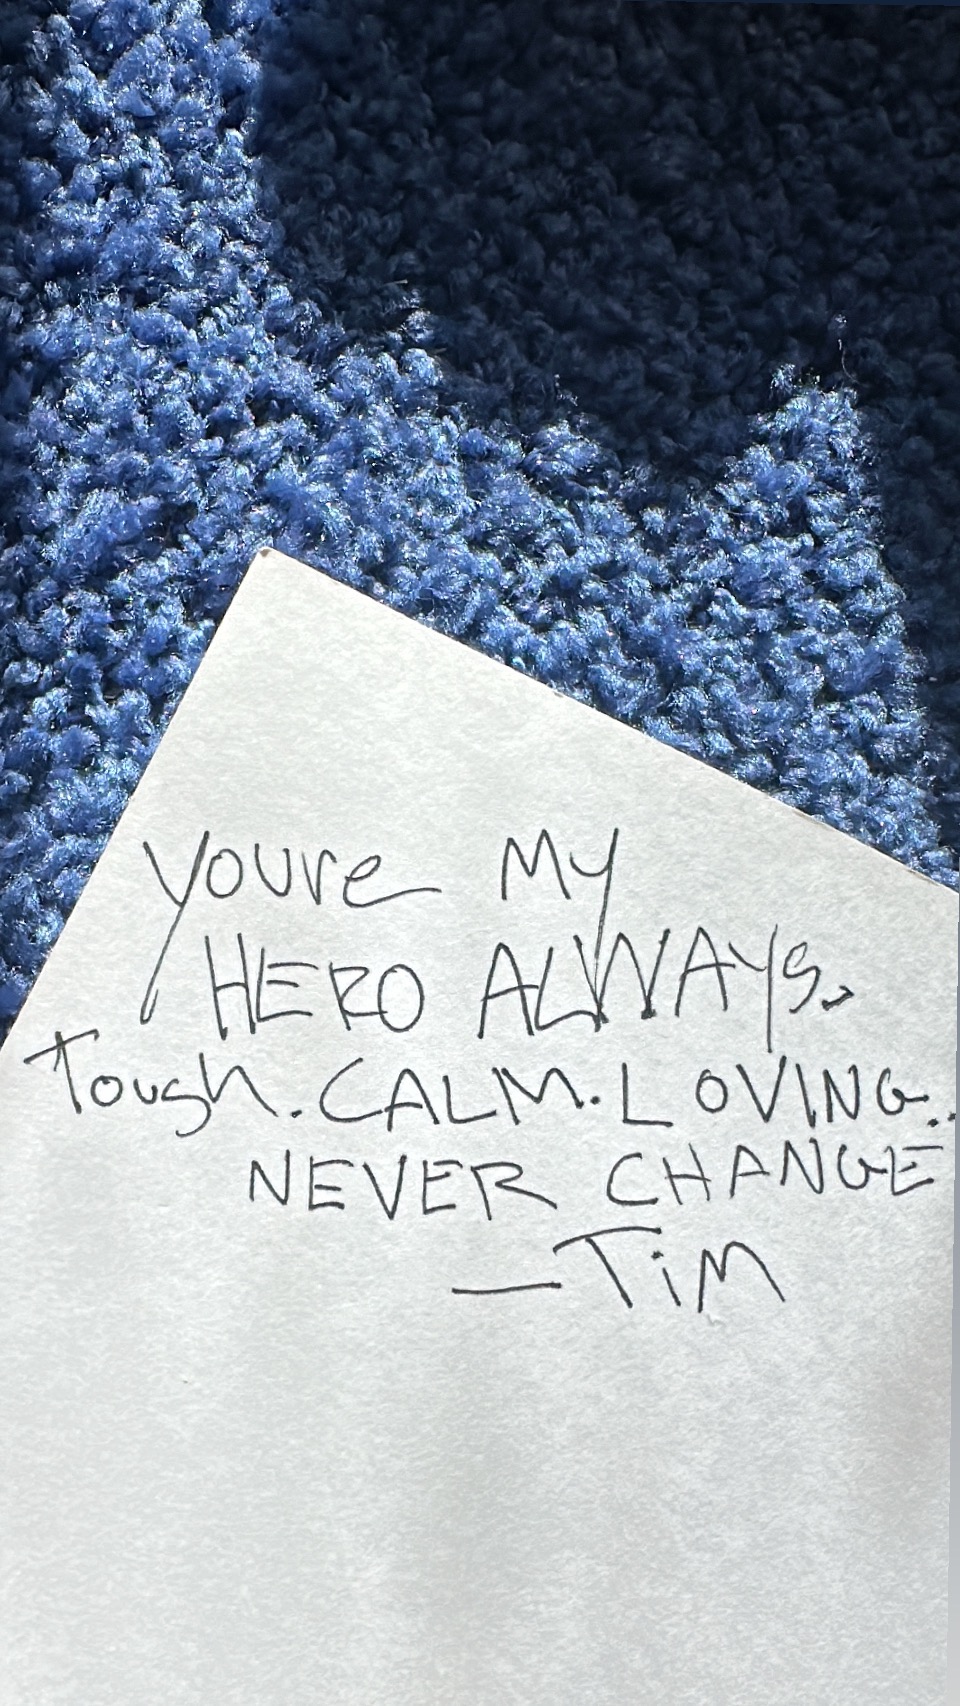 Youre My
HERO ALWAYS.
Tough. CALM. LOVING..
NEVER CHANGE
—TiM